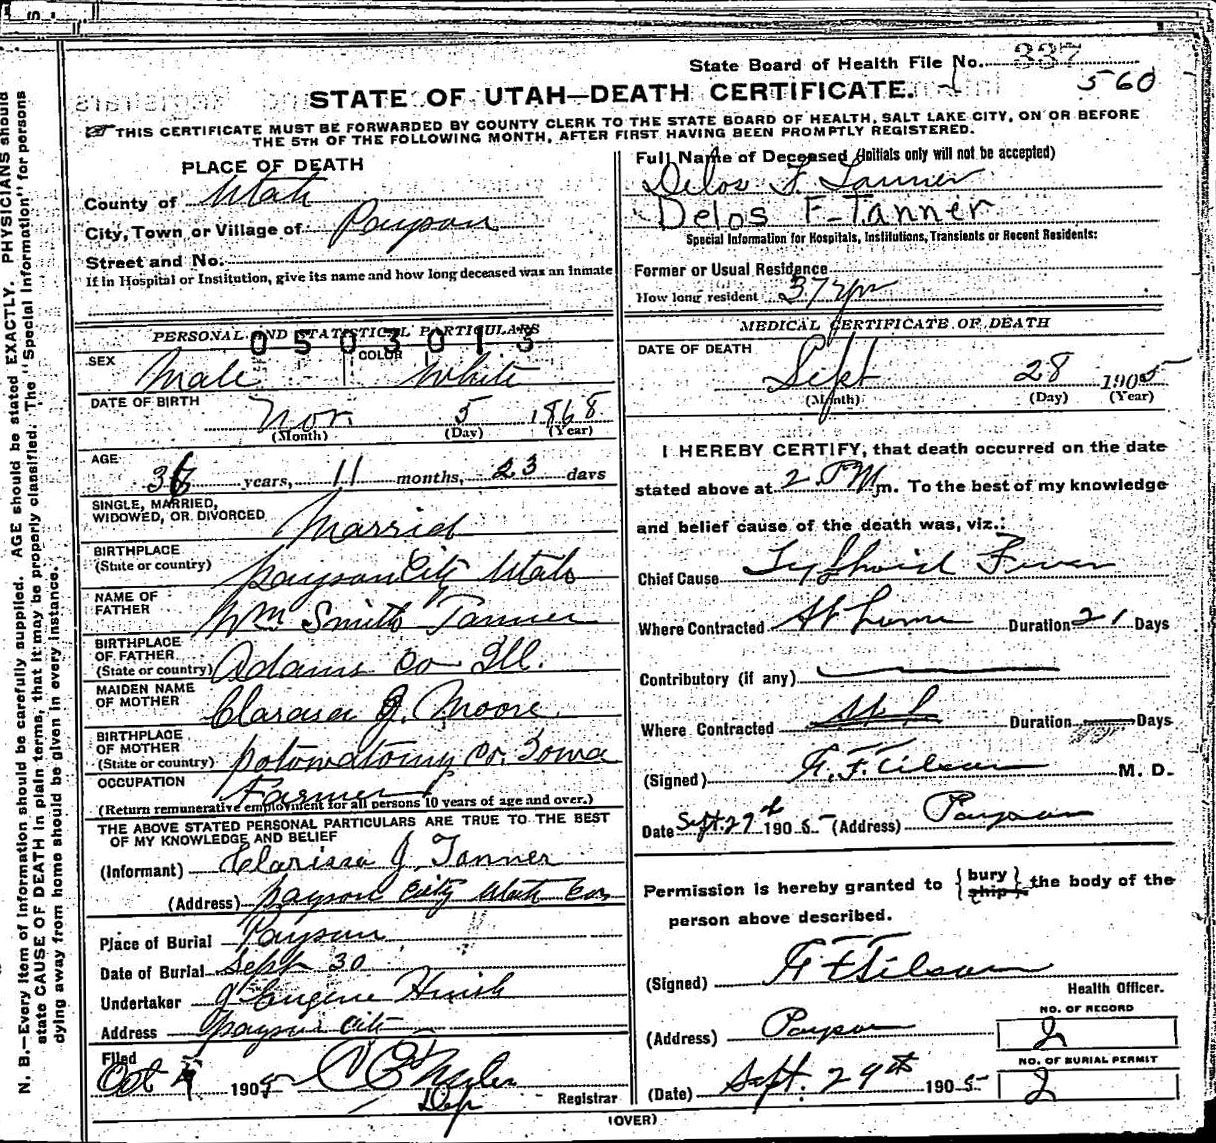 State Board of Health File No. 337
560
STATE OF UTAH—DEATH CERTIFICATE.
THIS CERTIFICATE MUST BE FORWARDED BY COUNTY CLERK TO THE STATE BOARD OF HEALTH, SALT LAKE CITY, ON OR BEFORE
THE 5TH OF THE FOLLOWING MONTH, AFTER FIRST HAVING BEEN PROMPTLY REGISTERED.
N. B.—Every item of information should be carefully supplied. AGE should be stated EXACTLY. PHYSICIANS should
state CAUSE OF DEATH in plain terms, that it may be properly classified. The "Special Information" for persons
dying away from home should be given in every instance.
PLACE OF DEATH
County of Utah
City, Town or Village of Payson
Street and No.
If in Hospital or Institution, give its name and how long deceased was an inmate
PERSONAL AND STATISTICAL PARTICULARS
0503013
SEX Male COLOR White
DATE OF BIRTH Nov. 5 1868
(Month) (Day) (Year)
AGE 36 years, 11 months, 23 days
SINGLE, MARRIED,
WIDOWED, OR DIVORCED Married
BIRTHPLACE
(State or country) payson City Utah
NAME OF
FATHER Wm Smith Tanner
BIRTHPLACE
OF FATHER
(State or country) Adams Co Ill.
MAIDEN NAME
OF MOTHER Clarissa J. Moore
BIRTHPLACE
OF MOTHER
(State or country) potowatomy Co. Iowa
OCCUPATION Farmer
(Return remunerative employment for all persons 10 years of age and over.)
THE ABOVE STATED PERSONAL PARTICULARS ARE TRUE TO THE BEST
OF MY KNOWLEDGE AND BELIEF
(Informant) Clarissa J Tanner
(Address) payson City Utah Co
Place of Burial Payson
Date of Burial Sept 30
Undertaker Eugene
Address payson City
Filed
Oct 1905
Dep Registrar
Full Name of Deceased (Initials only will not be accepted)
Delos F. Tanner
Delos F-Tanner
Special Information for Hospitals, Institutions, Transients or Recent Residents:
Former or Usual Residence
How long resident 37 yrs
MEDICAL CERTIFICATE OF DEATH
DATE OF DEATH
Sept 28 1905
(Month) (Day) (Year)
I HEREBY CERTIFY, that death occurred on the date
stated above at 2 PM m. To the best of my knowledge
and belief cause of the death was, viz.:
Chief Cause Tyfhoid Fever
Where Contracted At home Duration 21 Days
Contributory (if any)
Where Contracted Duration Days
(Signed) M. D.
Date Sept. 29th 1905 (Address) Payson
Permission is hereby granted to {bury ship} the body of the
person above described.
(Signed)
Health Officer.
(Address) Payson
NO. OF RECORD
2
NO. OF BURIAL PERMIT
2
(Date) Sept. 29th 1905
(OVER)